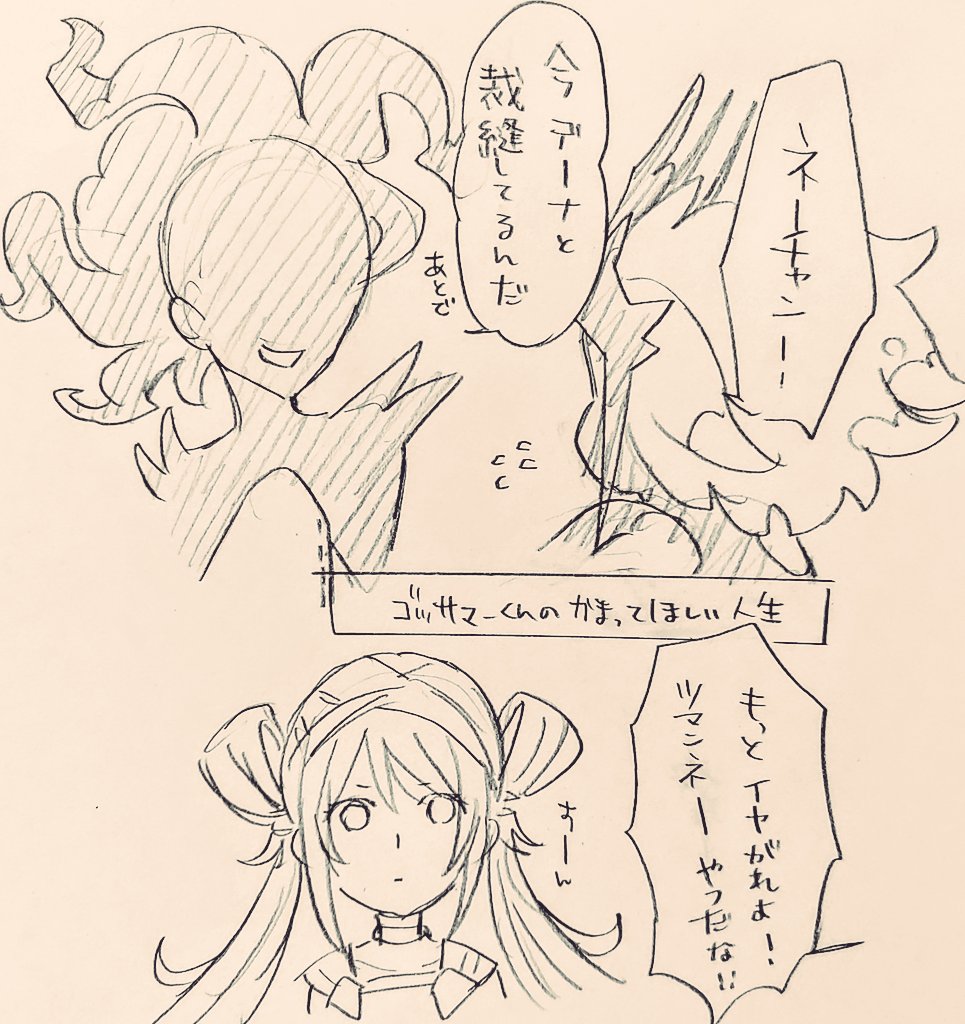 ネーチャンー
今デーナと
裁縫してるんだ
あとで
ゴッサマーくんのかまってほしい人生
もっとイヤがれよ!
ツマンネーやつだな!!
すーん